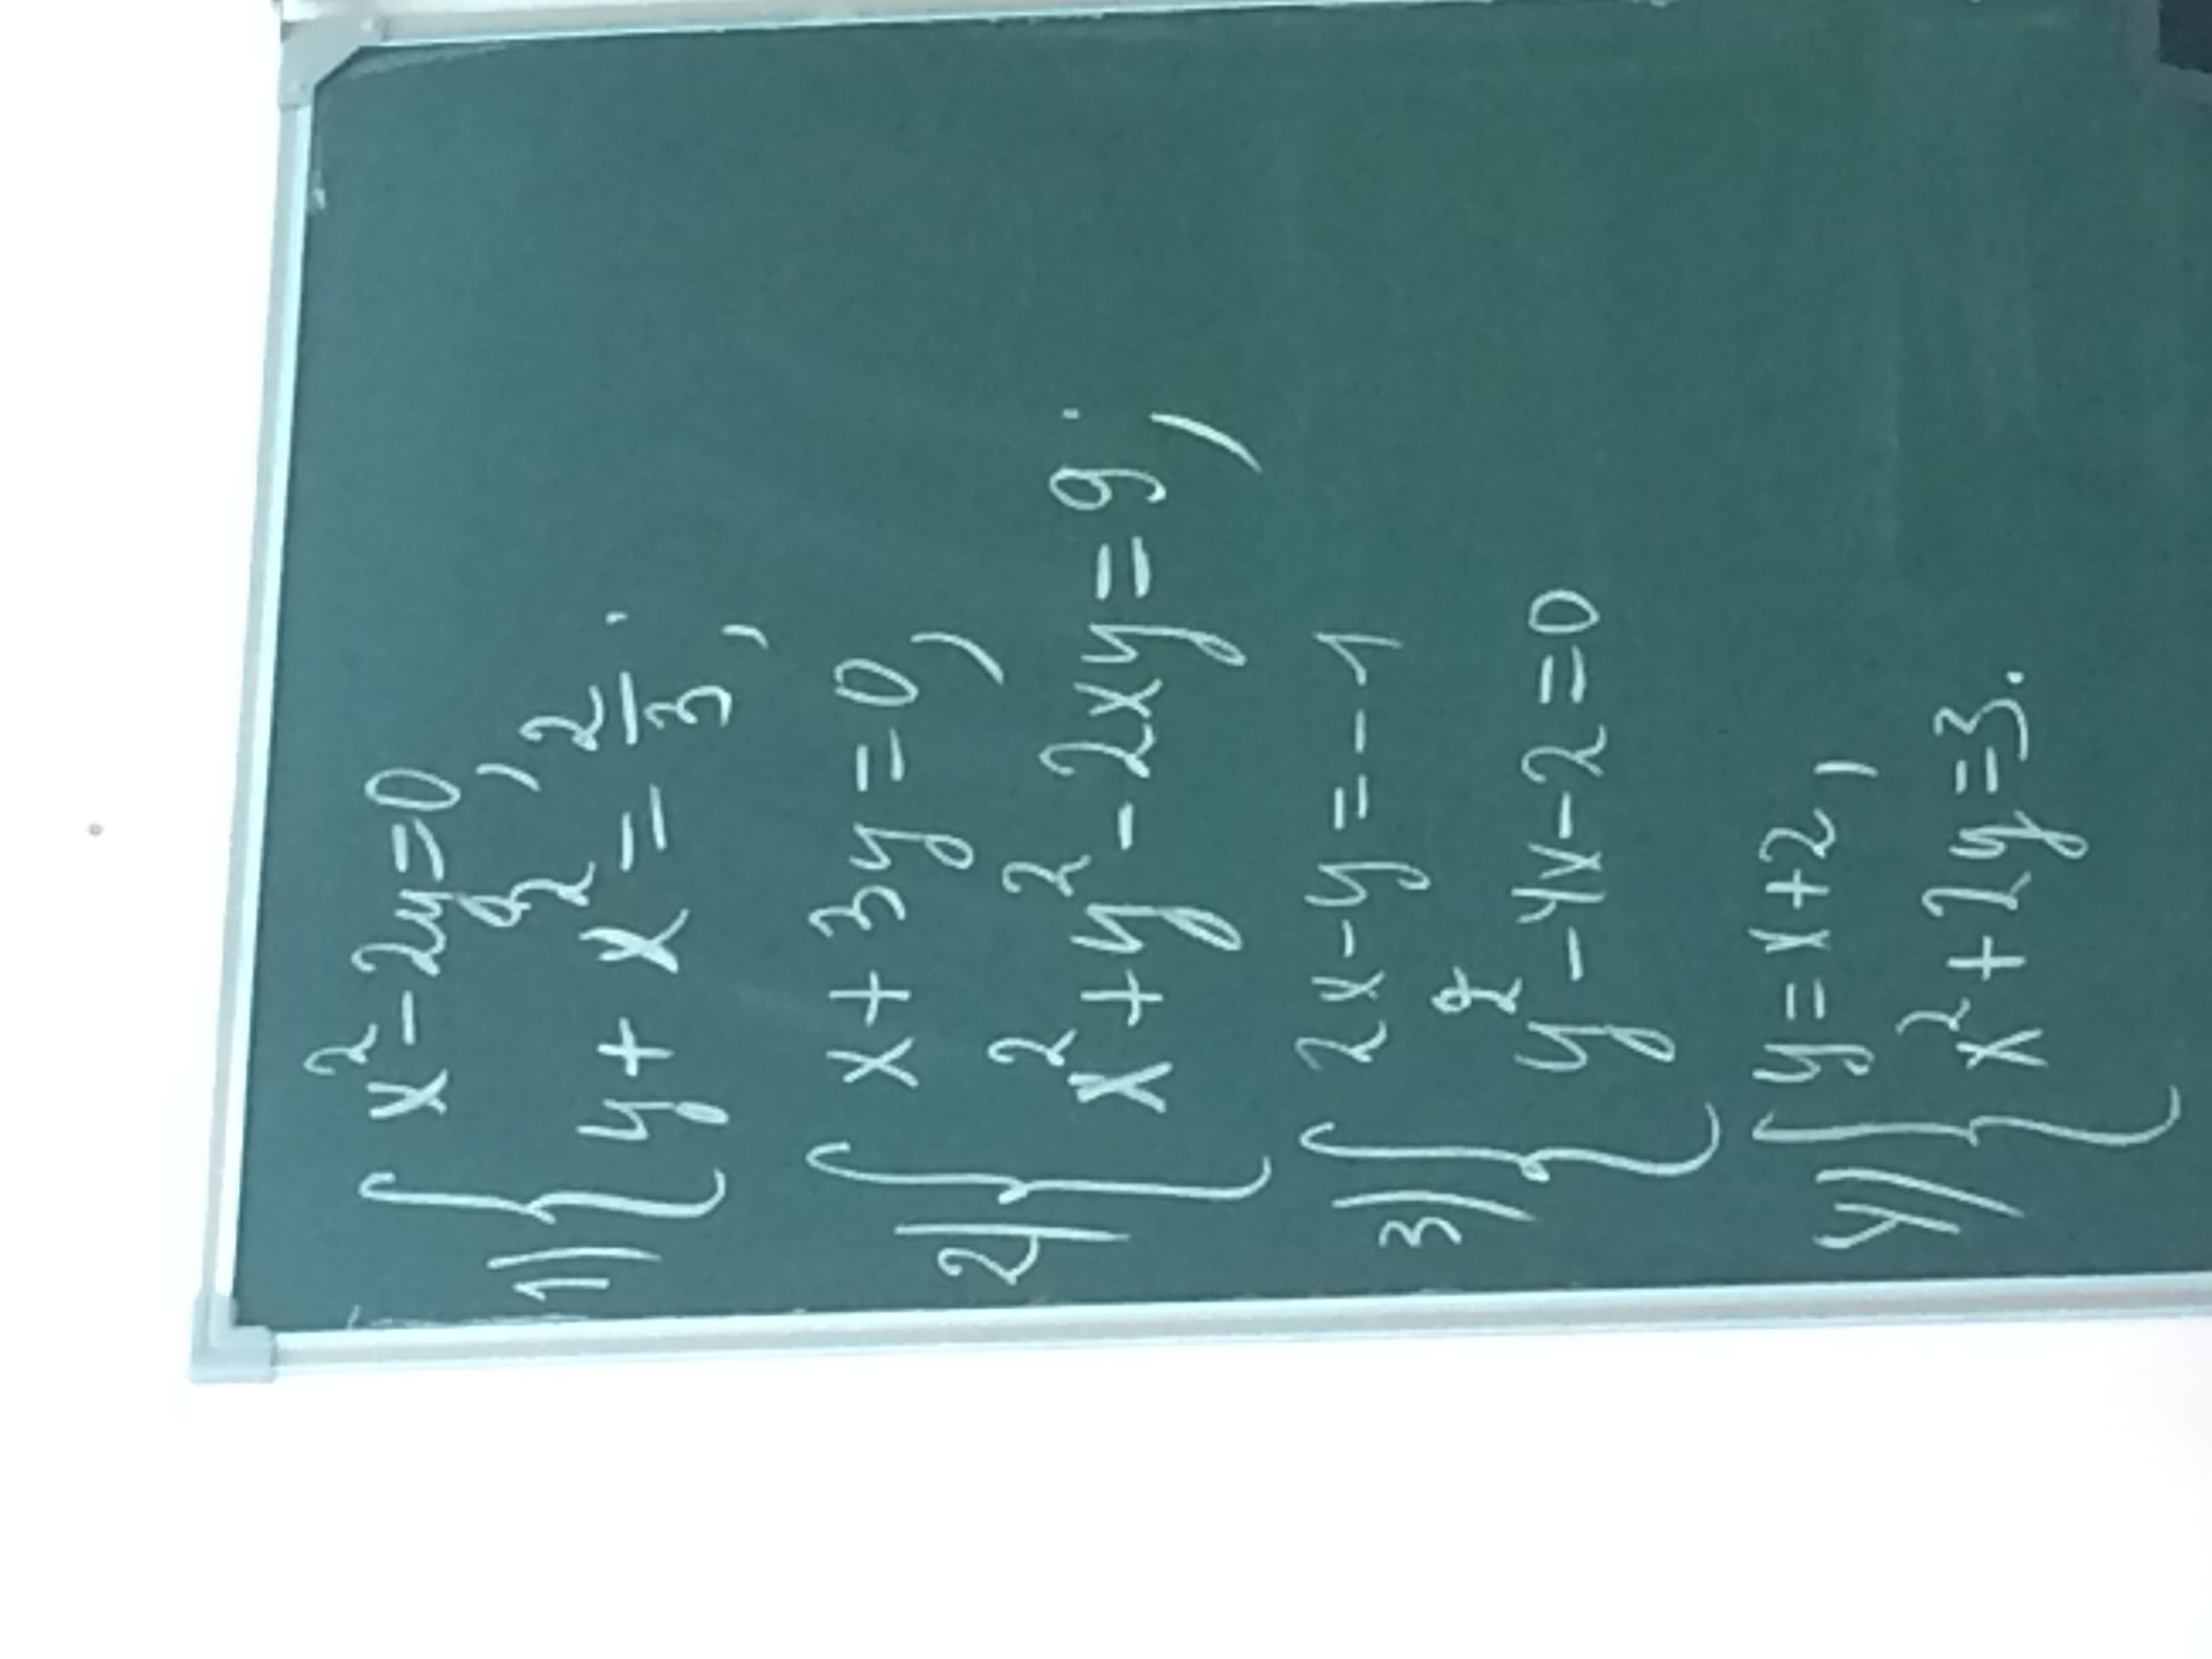 1) { x² - 2y = 0,
y + x² = 2/3;
2) { x + 3y = 0,
x² + y² - 2xy = 9;
3) { 2x - y = -1
y² - 4x - 2 = 0
4) { y = x + 2,
x² + 2y = 3.